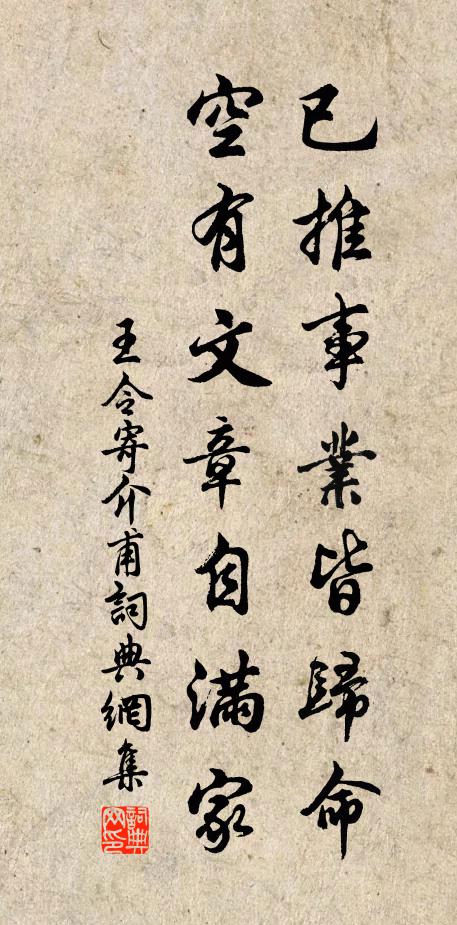 已推事業皆歸命
空有文章自滿家
王令寄介甫詞典網集
詞典网印